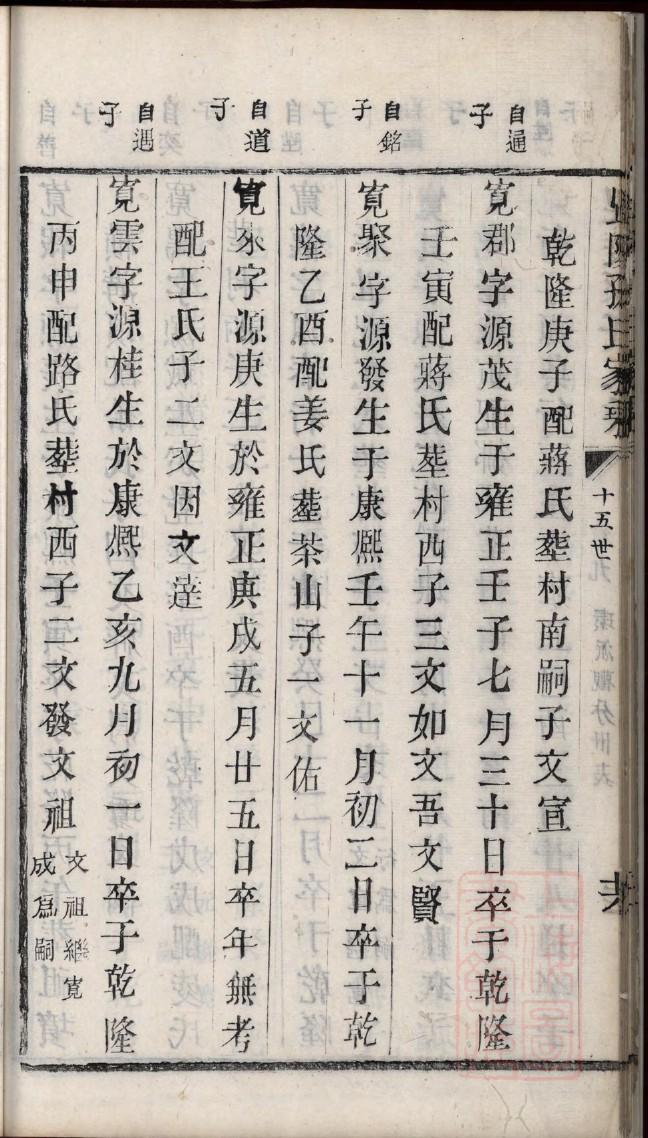 孫氏家
十五世
自遍子
自銘子
自道子
自遇子
乾隆庚子配蔣氏塟村南嗣子文宣
寛郡字源茂生于雍正壬子七月三十日卒于乾隆
壬寅配蔣氏塟村西子三文如文吾文賢
寛聚字源發生于康熈壬午十一月初二日卒于乾
隆乙酉配姜氏塟茶山子一文佑
寛永字源庚生於雍正庚戌五月廿五日卒年無考
配王氏子二文因文逹
寛雲字源桂生於康熈乙亥九月初一日卒于乾隆
丙申配路氏塟村西子二文發文祖
文祖繼寛
成為嗣